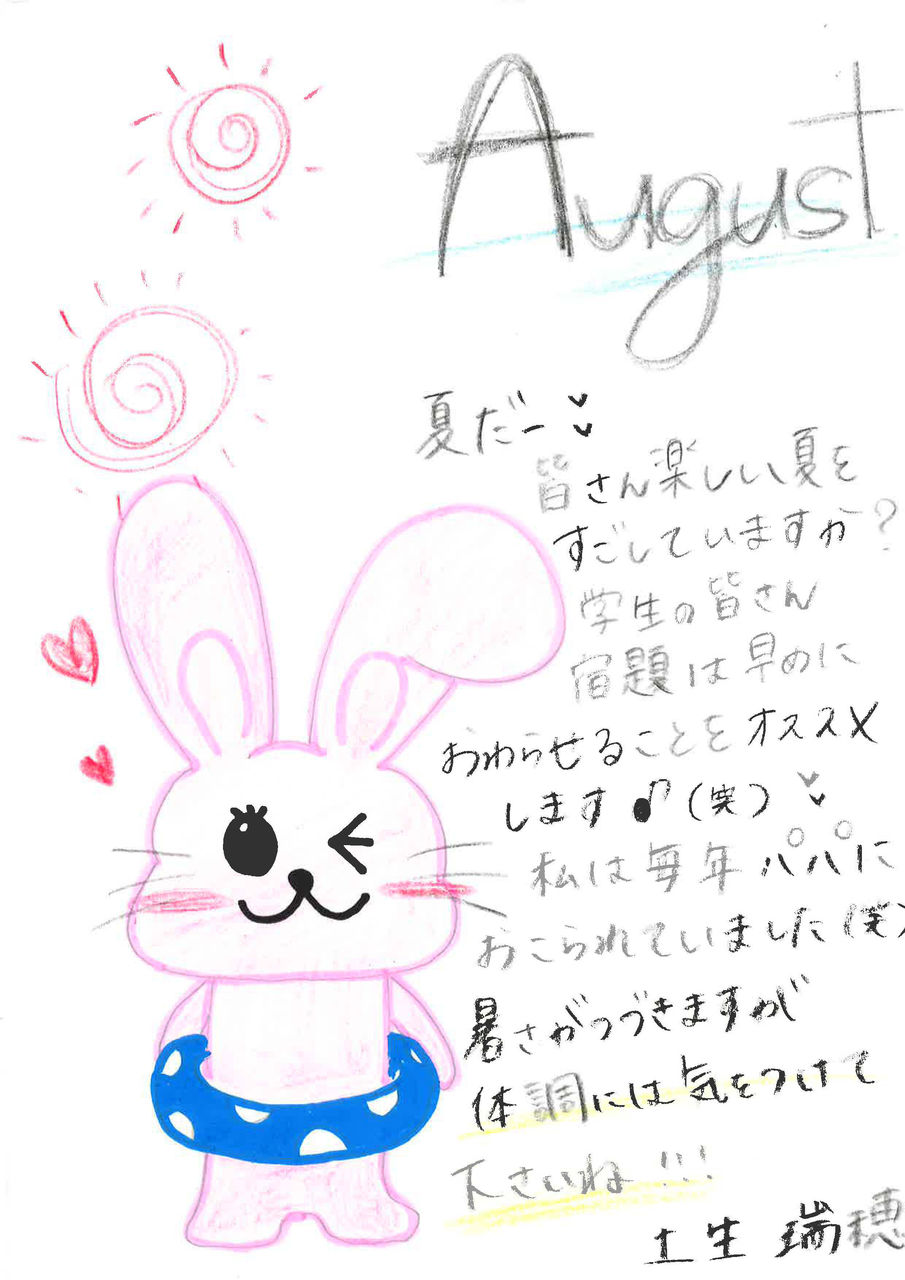 August
夏だー
皆さん楽しい夏を
すごしていますか?
学生の皆さん
宿題は早めに
おわらせることをオススメ
します♪(笑)
私は毎年パパに
おこられていました(笑)
暑さがつづきますが
体調には気をつけて
下さいね!!!
土生瑞穂